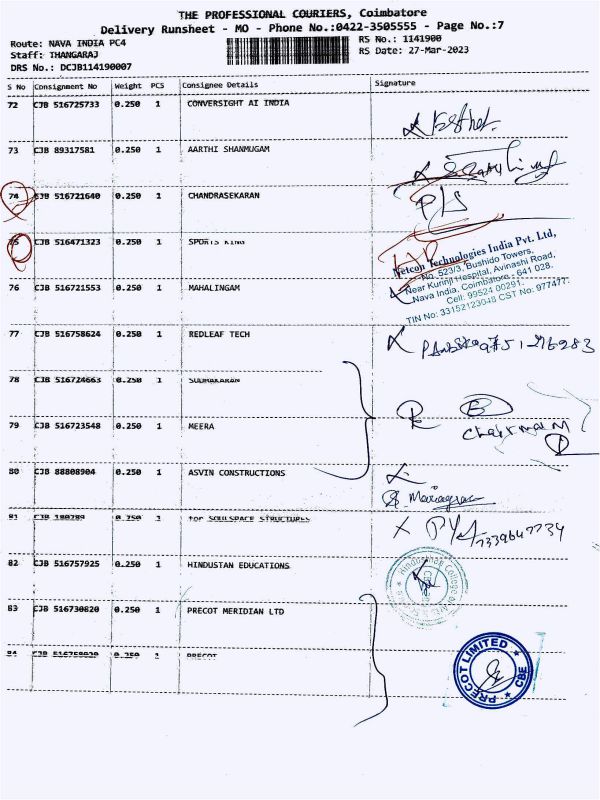 THE PROFESSIONAL COURIERS, Coimbatore
Delivery Runsheet - MO - Phone No.:0422-3505555 - Page No.:7
Route: NAVA INDIA PC4
RS No.: 1141900
Staff: THANGARAJ
RS Date: 27-Mar-2023
DRS No.: DCJB114190007
S No Consignment No Weight PCS Consignee Details Signature
72 CJB 516725733 0.250 1 CONVERSIGHT AI INDIA
73 CJB 89317581 0.250 1 AARTHI SHANMUGAM
74 CJB 516721640 0.250 1 CHANDRASEKARAN
P/S
75 CJB 516471323 0.250 1 SPORTS KING
Netcon Technologies India Pvt. Ltd,
No. 523/3, Bushido Towers,
Near Kurinji Hospital, Avinashi Road,
Nava India, Coimbatore - 641 028.
Cell: 99524 00291.
TIN No: 33152123048 CST No: 977477
76 CJB 516721553 0.250 1 MAHALINGAM
77 CJB 516758624 0.250 1 REDLEAF TECH
78 CJB 516724663 0.250 1 SUDHAKARAN
79 CJB 516723548 0.250 1 MEERA
Chairman M
80 CJB 88808904 0.250 1 ASVIN CONSTRUCTIONS
81 CJB 180789 0.250 1 for SOULSPACE STRUCTURES
7339647734
82 CJB 516757925 0.250 1 HINDUSTAN EDUCATIONS
Hindusthan College of Arts & Science
83 CJB 516730820 0.250 1 PRECOT MERIDIAN LTD
84 CJB 0.250 1 PRECOT
PRECOT LIMITED
CBE